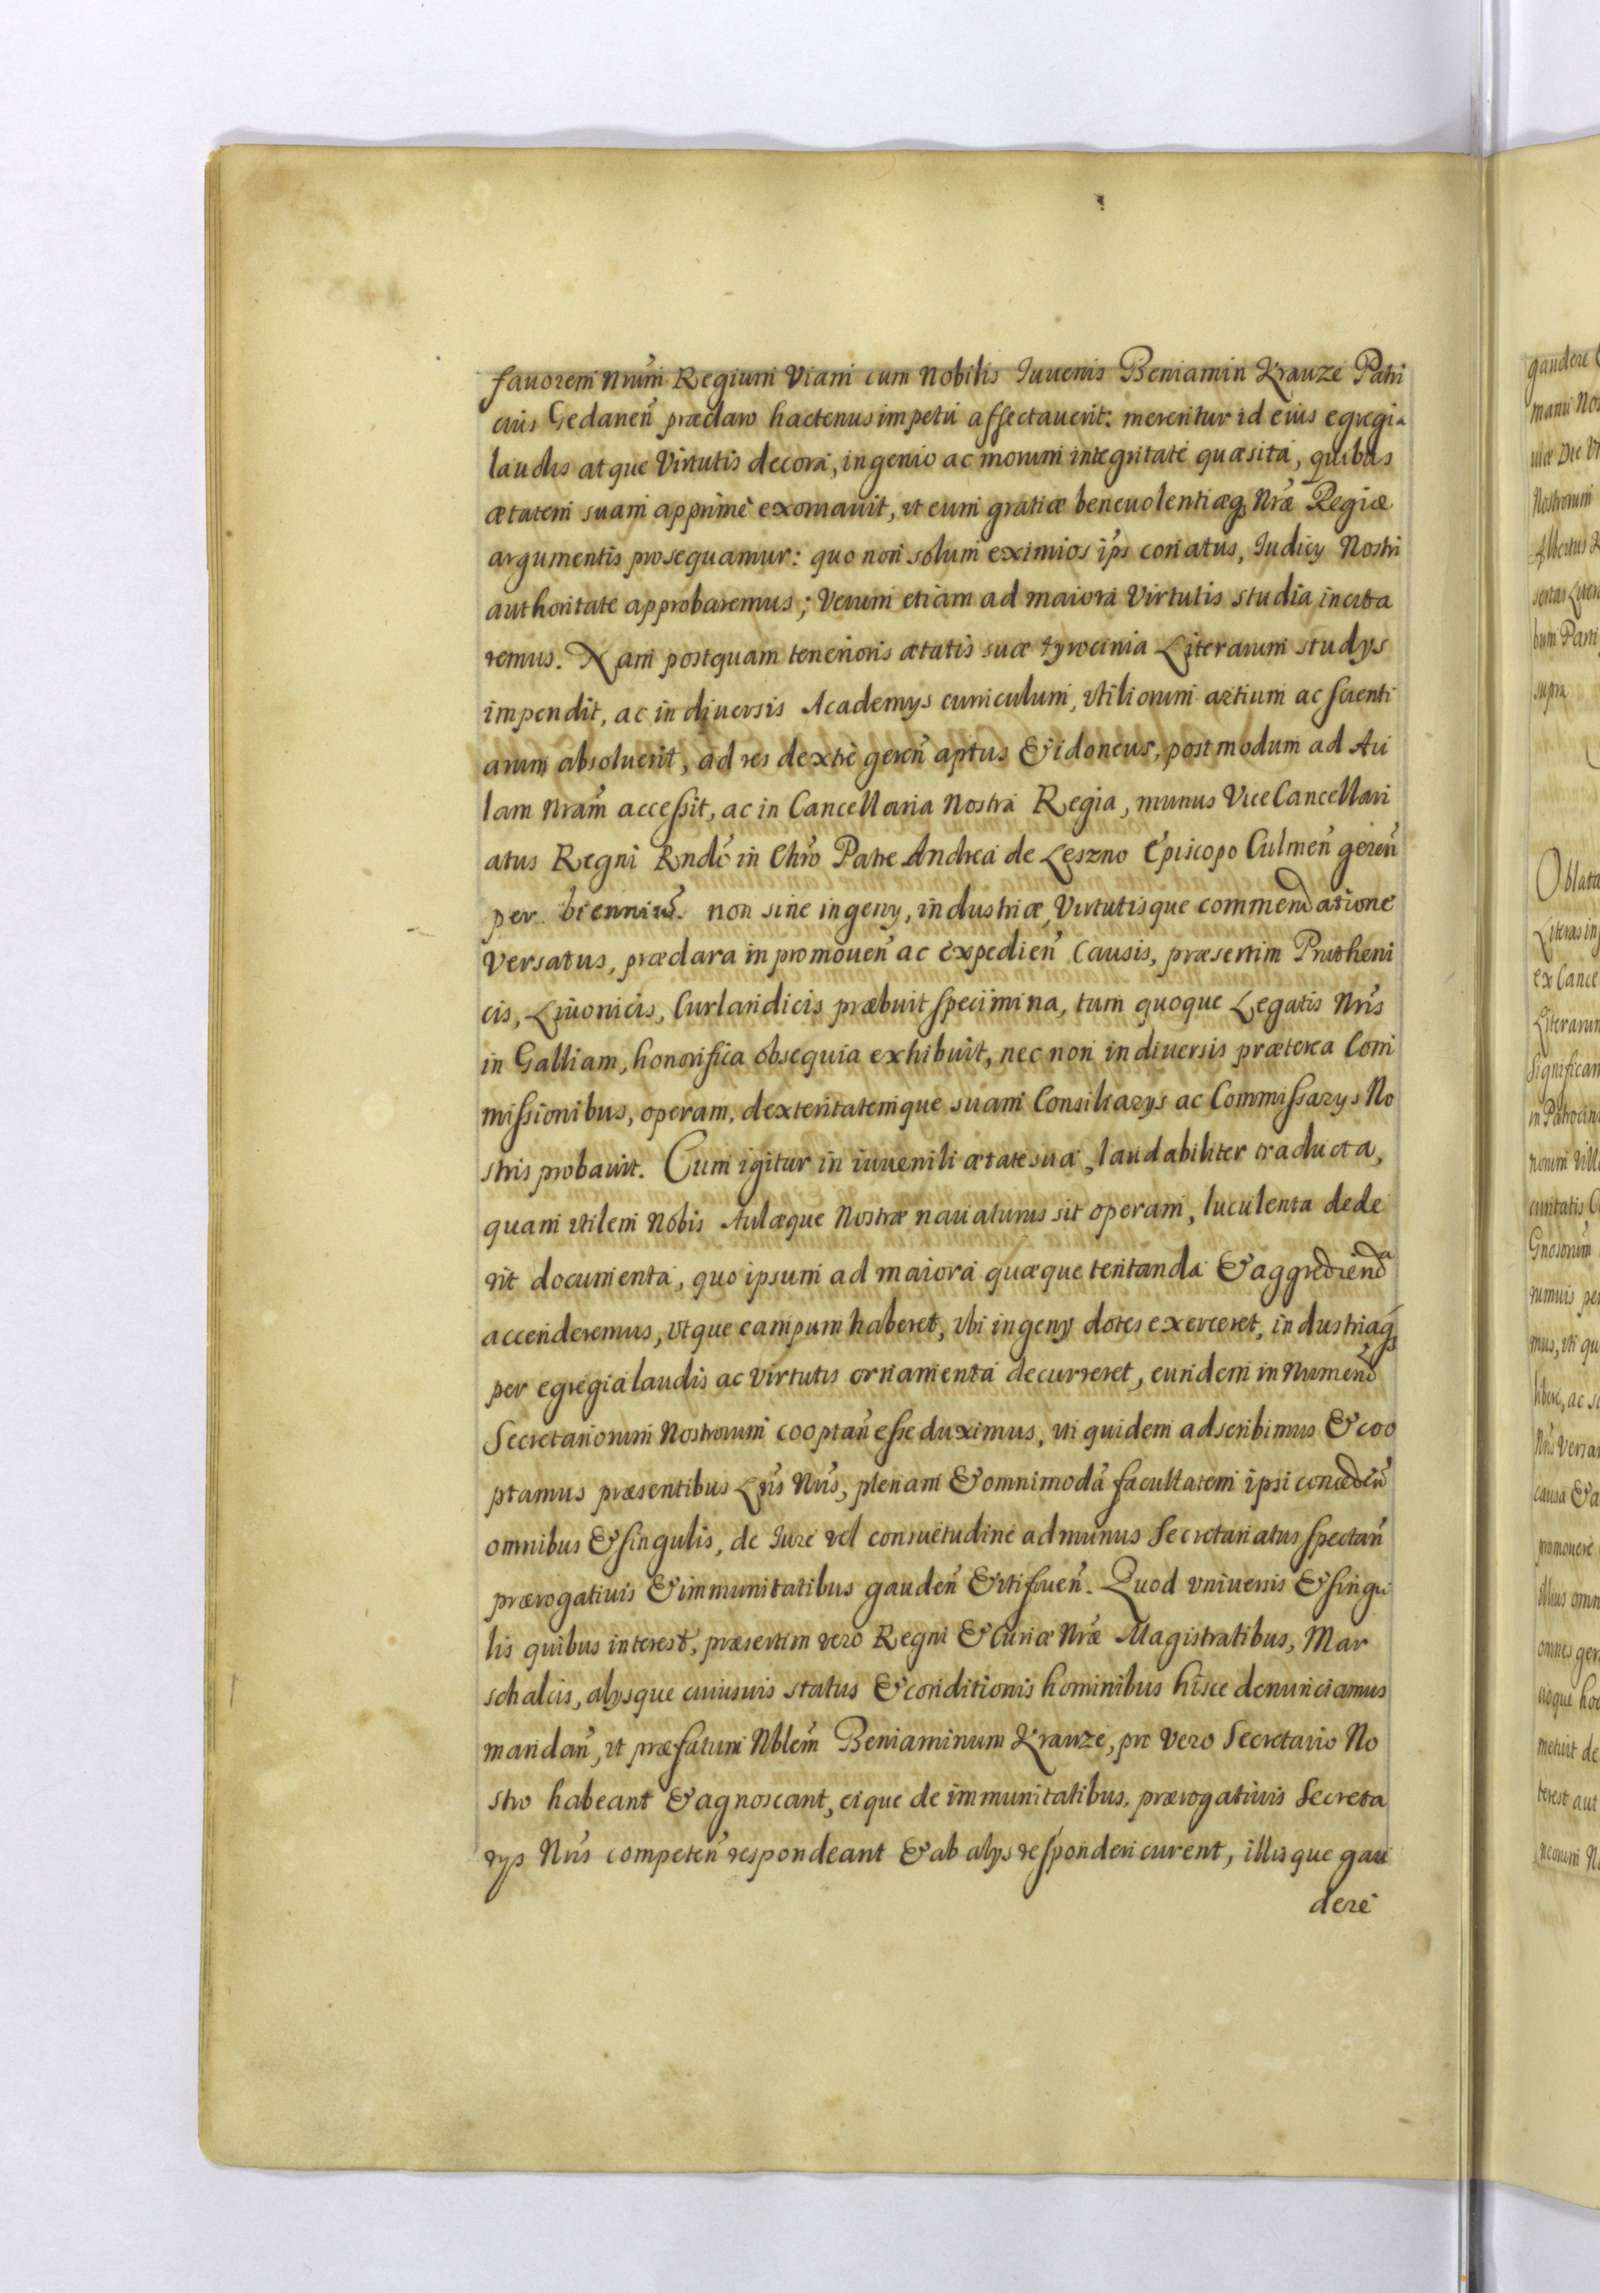 favorem Nrum̃ Regium Viam cum Nobilis Iuvenis Beniamin Krauze Patri
cius Gedanen̄ præclaro hactenus impetu affectauerit: merentur id eius egregi
laudis atque Virtutis decora, ingenio ac morum integritate quæsita, quibus
ætatem suam apprime exornauit, ut eum gratiæ beneuolentiæq; Nræ̃ Regiæ
argumentis prosequamur: quo non solum eximios ip̃s conatus, Iudicy Nostri
authoritate approbaremus; Verum etiam ad maiora Virtutis studia incita
remus. Nam postquam tenerioris ætatis suæ tyrocinia Literarum studys
impendit, ac in diuersis Academys curriculum, vtiliorum artium ac scienti
arum absoluerit, ad res dextre geren̄ aptus & idoneus, postmodum ad Au
lam Nram̃ accessit, ac in Cancellaria Nostra Regia, munus ViceCancellari
atus Regni Rndõ in Chrõ Patre Andrea de Leszno Episcopo Culmen̄ geren̄
per biennium̃. non sine ingeny, industriæ, Virtutisque commendatione
Versatus, præclara in promouen̄ ac expedien̄ Causis, præsertim Prutheni
cis, Liuonicis, Curlandicis præbuit specimina, tum quoque Legatis Nris̃
in Galliam, honorifica obsequia exhibuit, nec non in diuersis præterea Com
missionibus, operam, dexteritatemque suam Consiliarys ac Commissarys No
stris probauit. Cum igitur in iuuenili ætate sua, laudabiliter traducta,
quam vtilem Nobis Aulæque Nostræ nauaturus sit operam, luculenta dede
rit documenta, quo ipsum ad maiora quæque tentanda & aggrediendа
accenderemus, vtque campum haberet, vbi ingeny dotes exerceret, industriaq;
per egregia laudis ac virtutis ornamenta decurreret, eundem in Numerũ
Secretariorum Nostrorum cooptan̄ esse duximus, vti quidem adscribimus & coo
ptamus præsentibus Lris̃ Nris̃, plenam & omnimodã facultatem ipsi conceden̄
omnibus & singulis, de Iure vel consuetudine ad munus Secretariatus spectan̄
prærogatiuis & immunitatibus gauden̄ & vtifruen̄. Quod vniuersis & singu
lis quibus interest, præsertim vero Regni & Curiæ Nræ̃ Magistratibus, Mar
schalcis, alysque cuiusuis status & conditionis hominibus hisce denunciamus
mandan̄, ut præfatum Nblem̃ Beniaminum Krauze, pro Vero Secretario No
stro habeant & agnoscant, eique de immunitatibus, prærogatiuis Secreta
rys Nris̃ competen̄ respondeant & ab alys responderi curent, illisque gau
dere